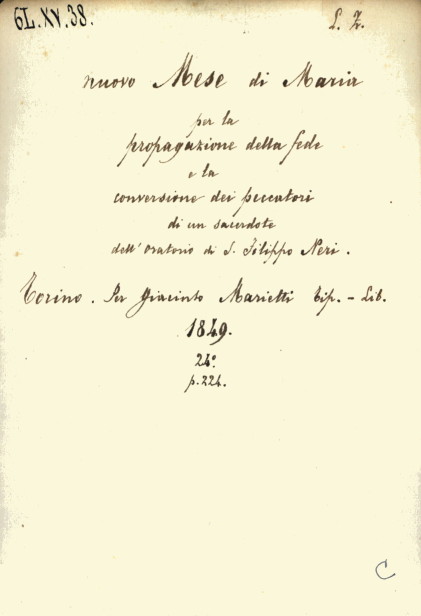 6L.XV.38.
L. Z.
nuovo Mese di Maria
per la
propagazione della fede
e la
conversione dei peccatori
di un sacerdote
dell'oratorio di S. Filippo Neri.
Torino. Per Giacinto Marietti Tip. - Lib.
1849.
24°.
p. 224.
C